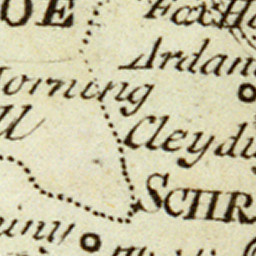 OE
Fox H
Ardan
Morning
ll
Cleydu
SCHR
iny